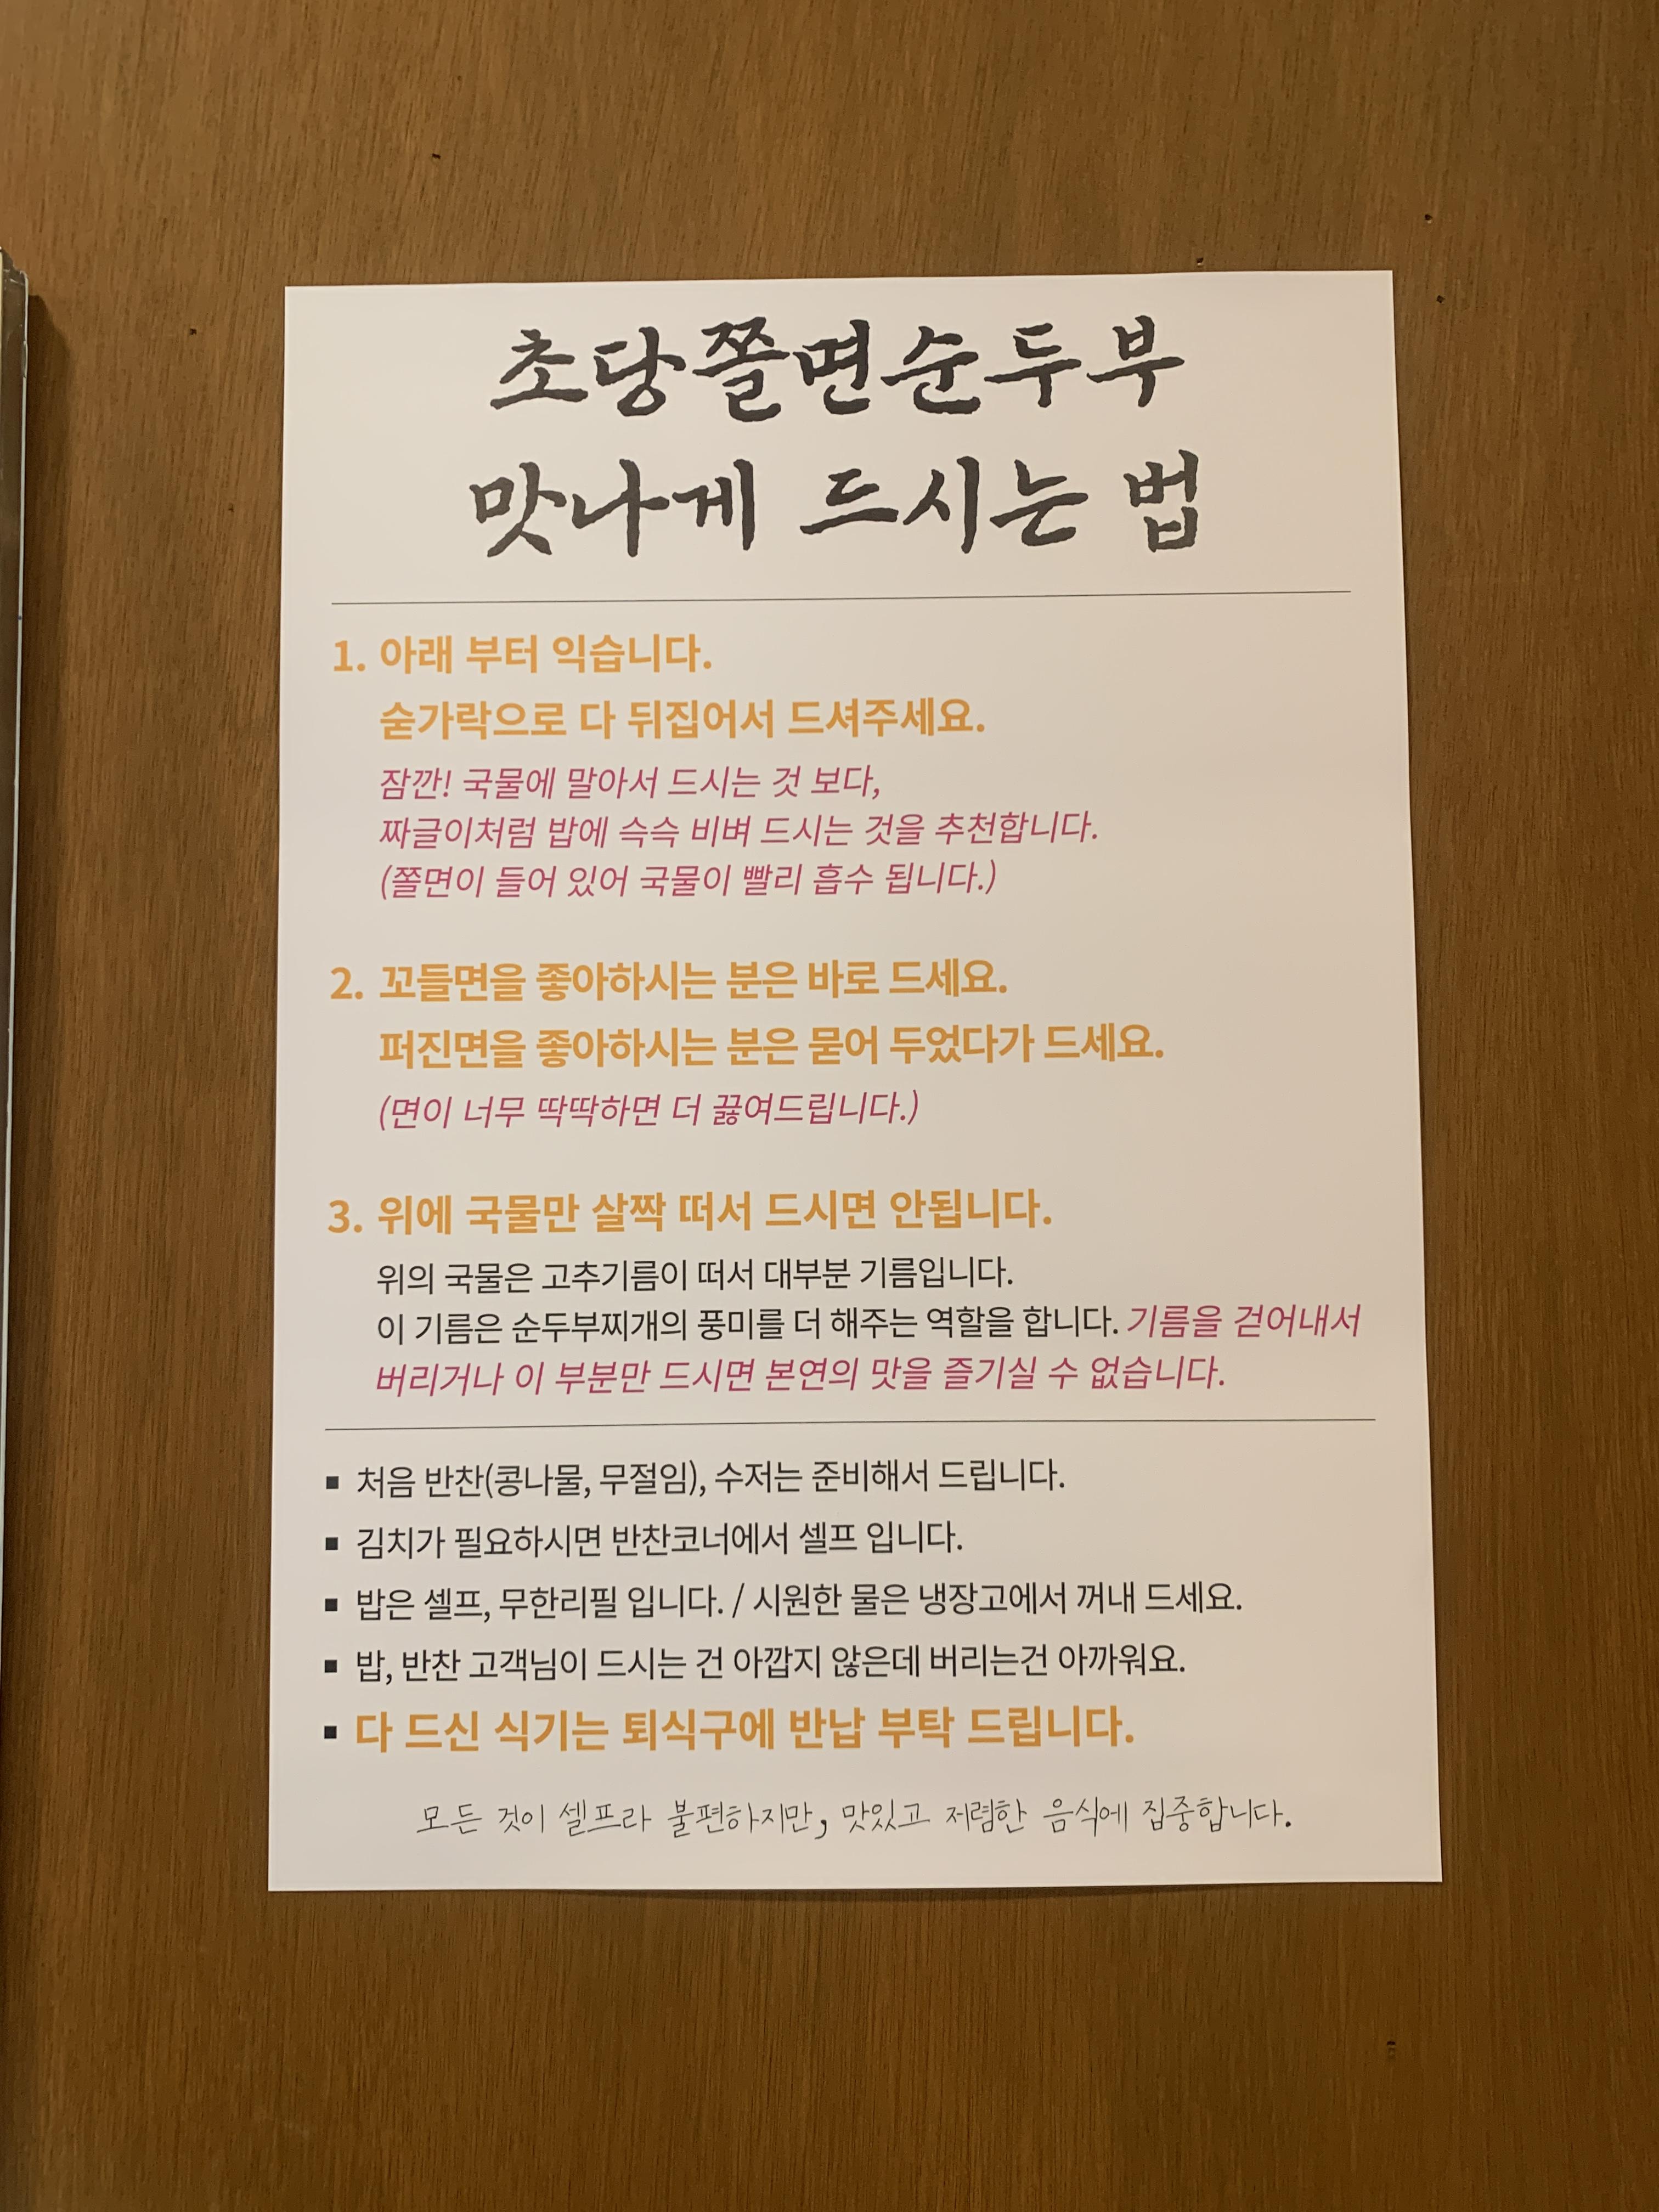 초당쫄면순두부
맛나게 드시는 법
1. 아래 부터 익습니다.
숟가락으로 다 뒤집어서 드셔주세요.
잠깐! 국물에 말아서 드시는 것 보다,
짜글이처럼 밥에 슥슥 비벼 드시는 것을 추천합니다.
(쫄면이 들어 있어 국물이 빨리 흡수 됩니다.)
2. 꼬들면을 좋아하시는 분은 바로 드세요.
퍼진면을 좋아하시는 분은 묻어 두었다가 드세요.
(면이 너무 딱딱하면 더 끓여드립니다.)
3. 위에 국물만 살짝 떠서 드시면 안됩니다.
위의 국물은 고추기름이 떠서 대부분 기름입니다.
이 기름은 순두부찌개의 풍미를 더 해주는 역할을 합니다. 기름을 걷어내서
버리거나 이 부분만 드시면 본연의 맛을 즐기실 수 없습니다.
▪ 처음 반찬(콩나물, 무절임), 수저는 준비해서 드립니다.
▪ 김치가 필요하시면 반찬코너에서 셀프 입니다.
▪ 밥은 셀프, 무한리필 입니다. / 시원한 물은 냉장고에서 꺼내 드세요.
▪ 밥, 반찬 고객님이 드시는 건 아깝지 않은데 버리는건 아까워요.
▪ 다 드신 식기는 퇴식구에 반납 부탁 드립니다.
모든 것이 셀프라 불편하지만, 맛있고 저렴한 음식에 집중합니다.